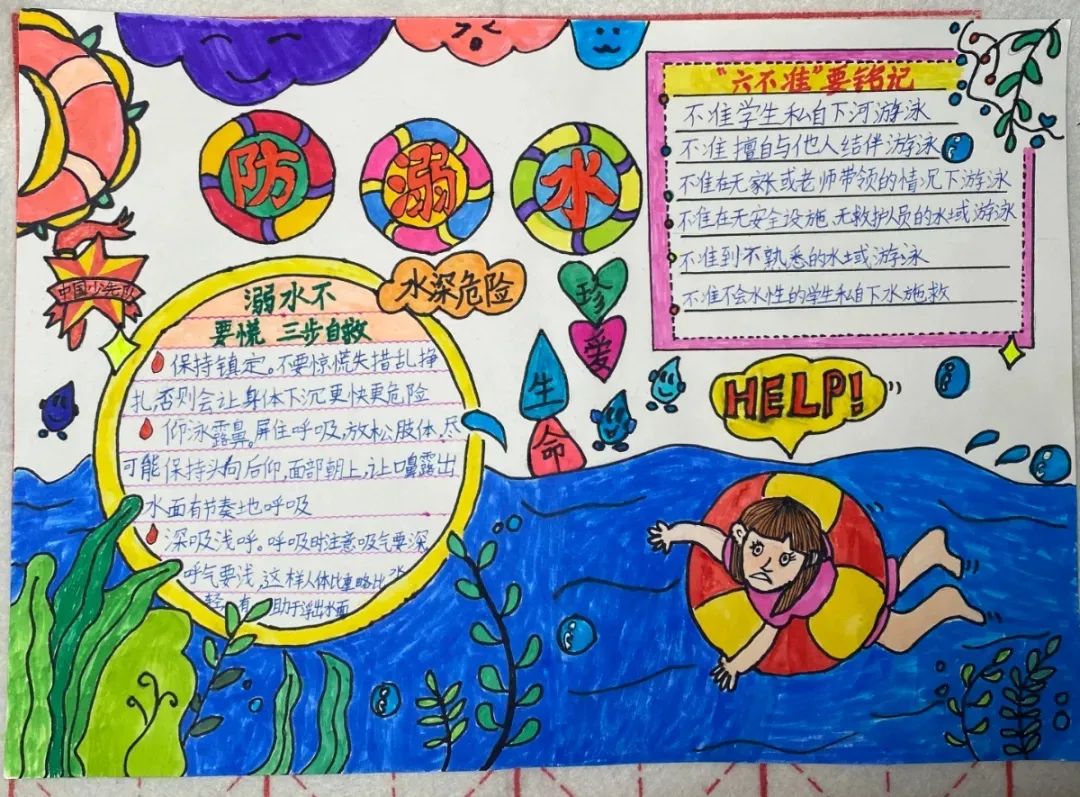 防溺水
"六不准"要铭记
不准学生私自下河游泳
不准擅自与他人结伴游泳
不准在无家长或老师带领的情况下游泳
不准在无安全设施、无救护人员的水域游泳
不准到不熟悉的水域游泳
不准不会水性的学生私自下水施救
中国少先队
水深危险
溺水不
要慌 三步自救
保持镇定。不要惊慌失措乱挣
扎,否则会让身体下沉更快更危险
仰泳露鼻。屏住呼吸,放松肢体,尽
可能保持头向后仰,面部朝上,让口鼻露出
水面有节奏地呼吸
深吸浅呼。呼吸时注意吸气要深
呼气要浅,这样人体比重略比水
轻,有助于浮出水面
珍
爱
生
命
HELP!